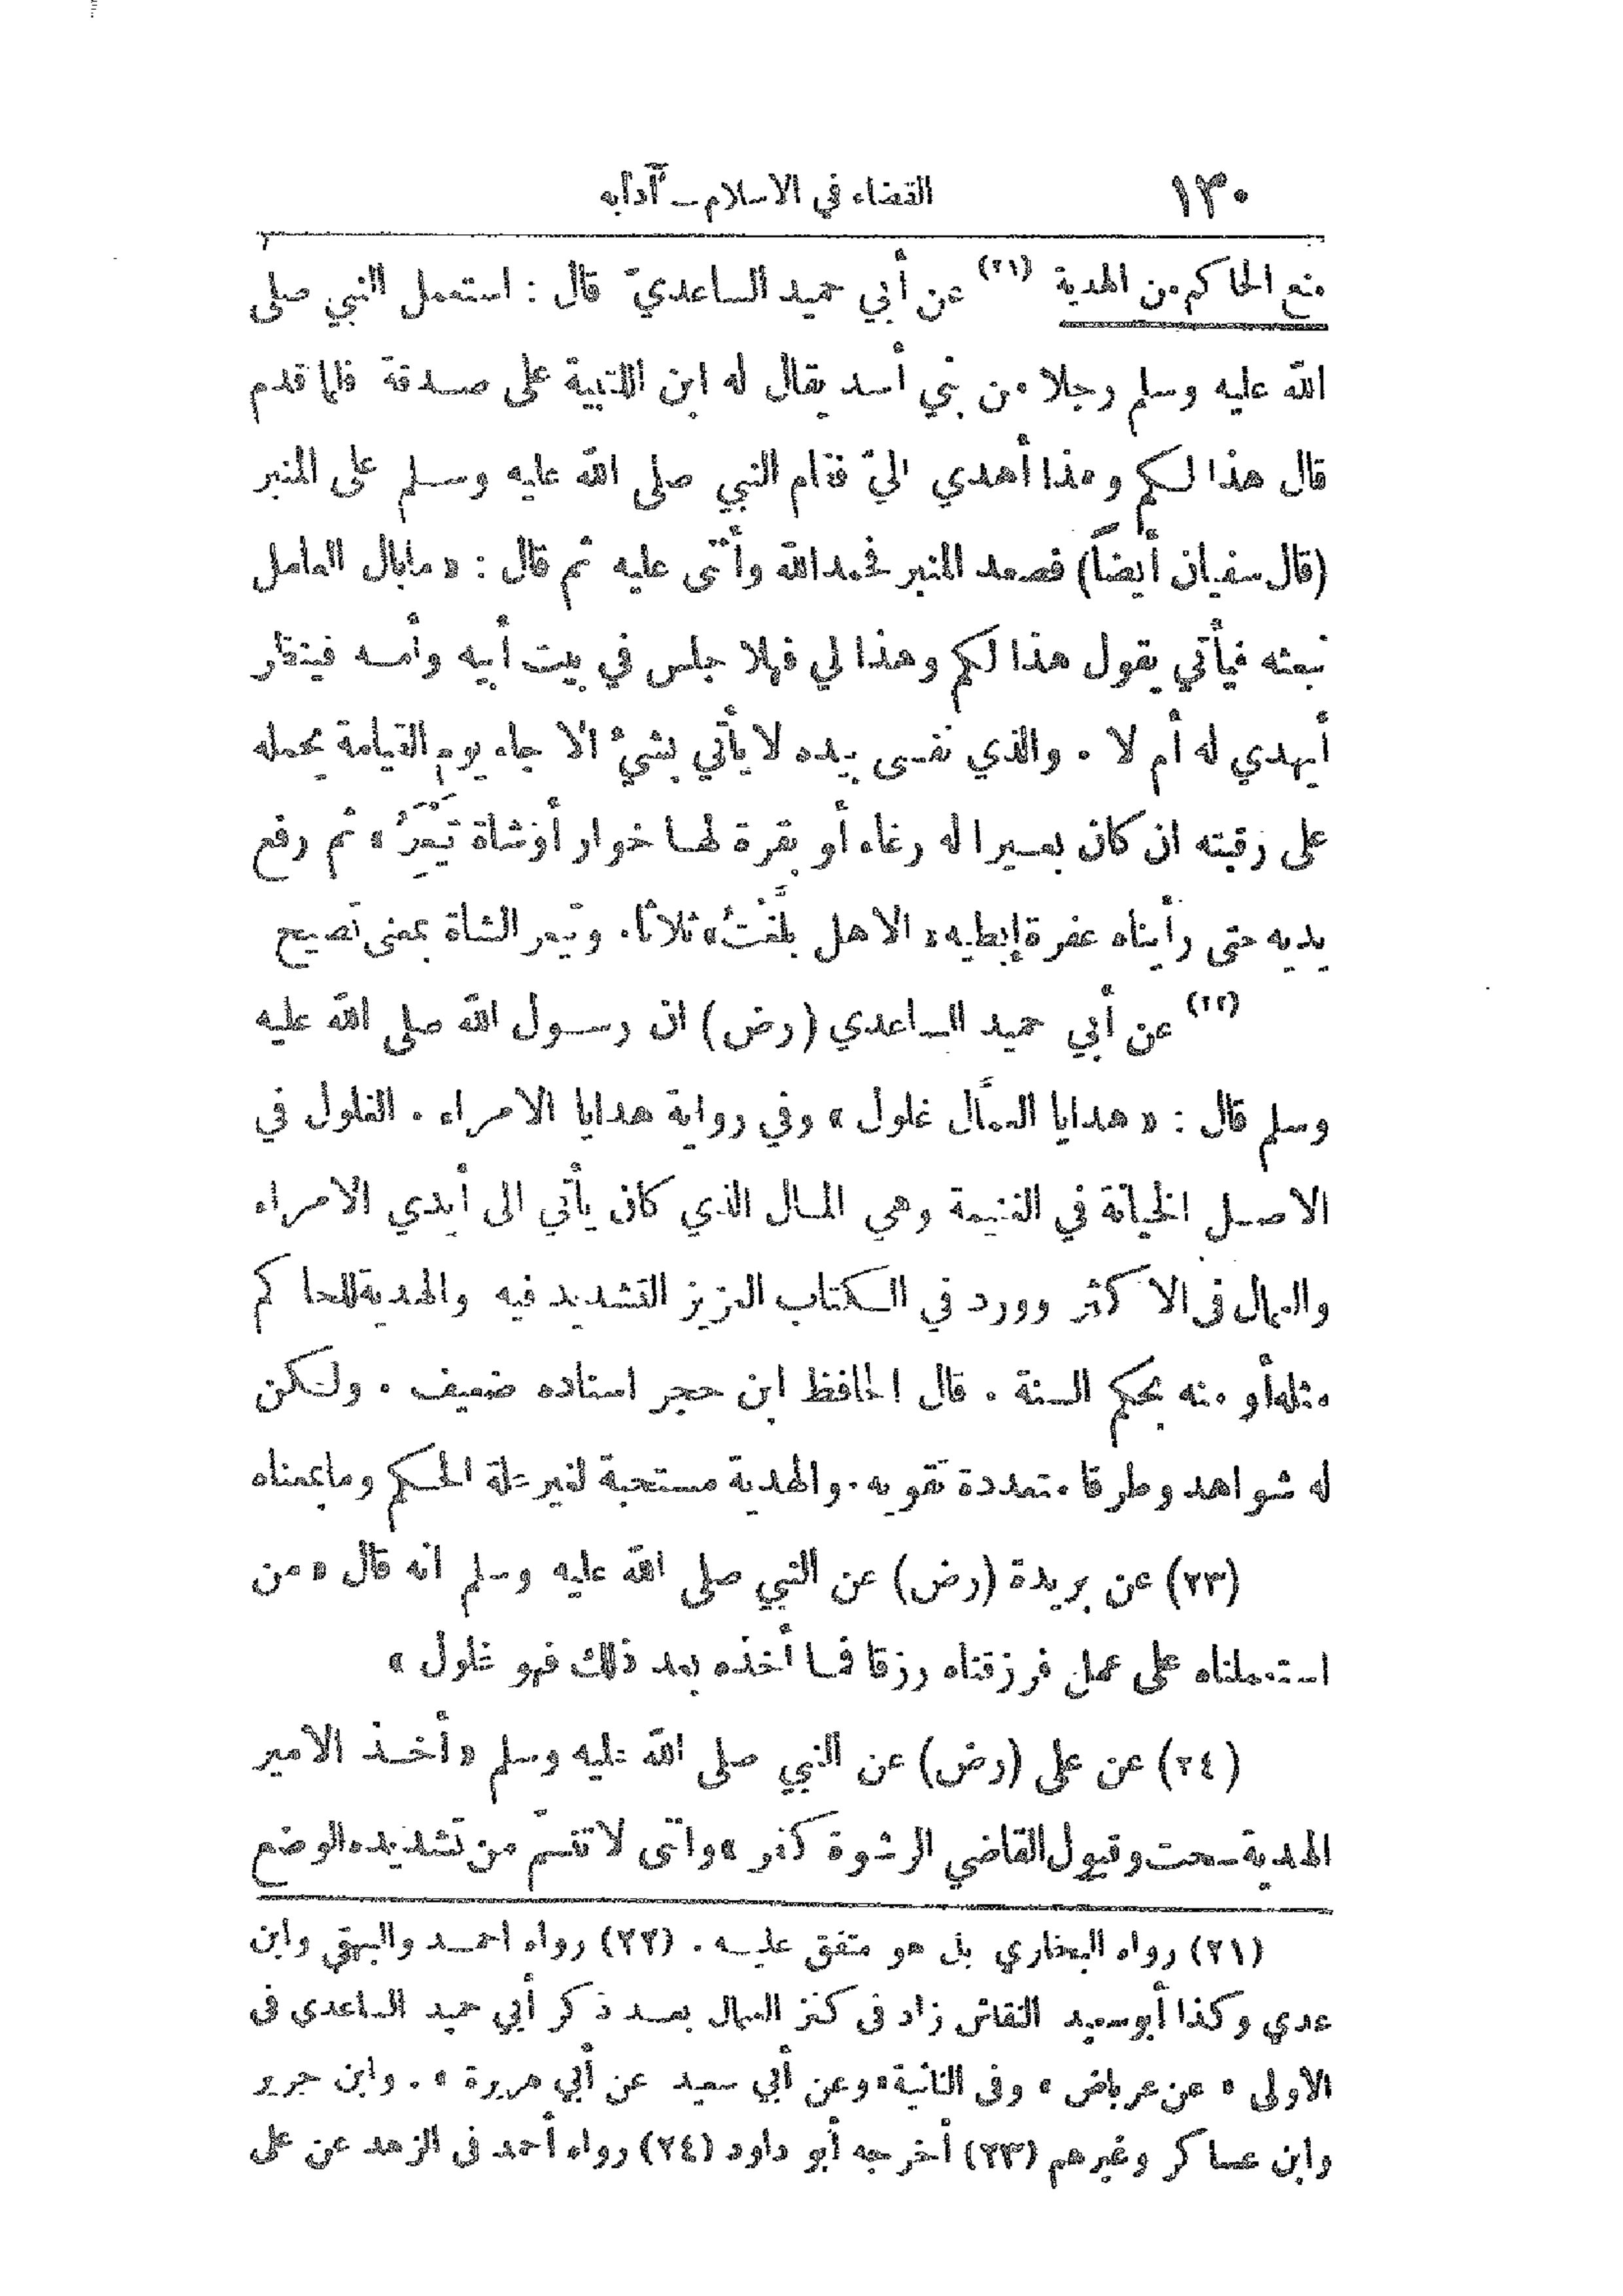 ١٣٠ القضاء في الاسلام ــ آدابه
منع الحاكم من الهدية (٢١) عن أبي حميد الساعديّ قال : استعمل النبي صلى
الله عليه وسلم رجلا من بني أسد يقال له ابن اللتبية على صدقة فلما قدم
قال هذا لكم وهذا أهدي اليّ فقام النبي صلى الله عليه وسلم على المنبر
(قال سفيان أيضاً) فصعد المنبر فحمد الله وأثنى عليه ثم قال : « ما بال العامل
نبعثه فيأتي يقول هذا لكم وهذا لي فهلا جلس في بيت أبيه وأمه فينظر
أيهدى له أم لا . والذي نفسى بيده لا يأتي بشيءٍ الا جاء يوم القيامة يحمله
على رقبته ان كان بعيرا له رغاء أو بقرة لها خوار أو شاة تَيْعَرُ » ثم رفع
يديه حتى رأيناه عفرة إبطيه « الا هل بلَّغْتُ » ثلاثا . وتيعر الشاة بمعنى تصيح
(٢٢) عن أبي حميد الساعدي (رض) ان رسول الله صلى الله عليه
وسلم قال : « هدايا العمَّال غلول » وفي رواية هدايا الامراء . الغلول في
الاصل الخيانة في الغنيمة وهي المال الذي كان يأتي الى أيدي الامراء
والعمال فى الاكثر وورد في الكتاب العزيز التشديد فيه والهدية للحاكم
مثله أو منه بحكم السنة . قال الحافظ ابن حجر اسناده ضعيف . ولكن
له شواهد وطرقا متعددة تقويه . والهدية مستحبة لغير علة الحكم وما بمعناه
(٢٣) عن بريدة (رض) عن النبي صلى الله عليه وسلم انه قال « من
استعملناه على عمل فرزقناه رزقا فما أخذه بعد ذلك فهو غلول »
(٢٤) عن على (رض) عن النبي صلى الله عليه وسلم « أخذ الامير
الهدية سحت وقبول القاضي الرشوة كفر » وانى لا تقسم من تشديده الوضع
(٢١) رواه البخاري بل هو متفق عليه . (٢٢) رواه احمد والبيهقي وابن
عدي وكذا أبو سعيد النقاش زاد فى كنز العمال بعد ذكر أبي حميد الساعدى فى
الاولى « عن عرباض » وفى الثانية « وعن أبي سعيد عن أبي هريرة » . وابن جرير
وابن عساكر وغيرهم (٢٣) أخرجه أبو داود (٢٤) رواه أحمد فى الزهد عن على